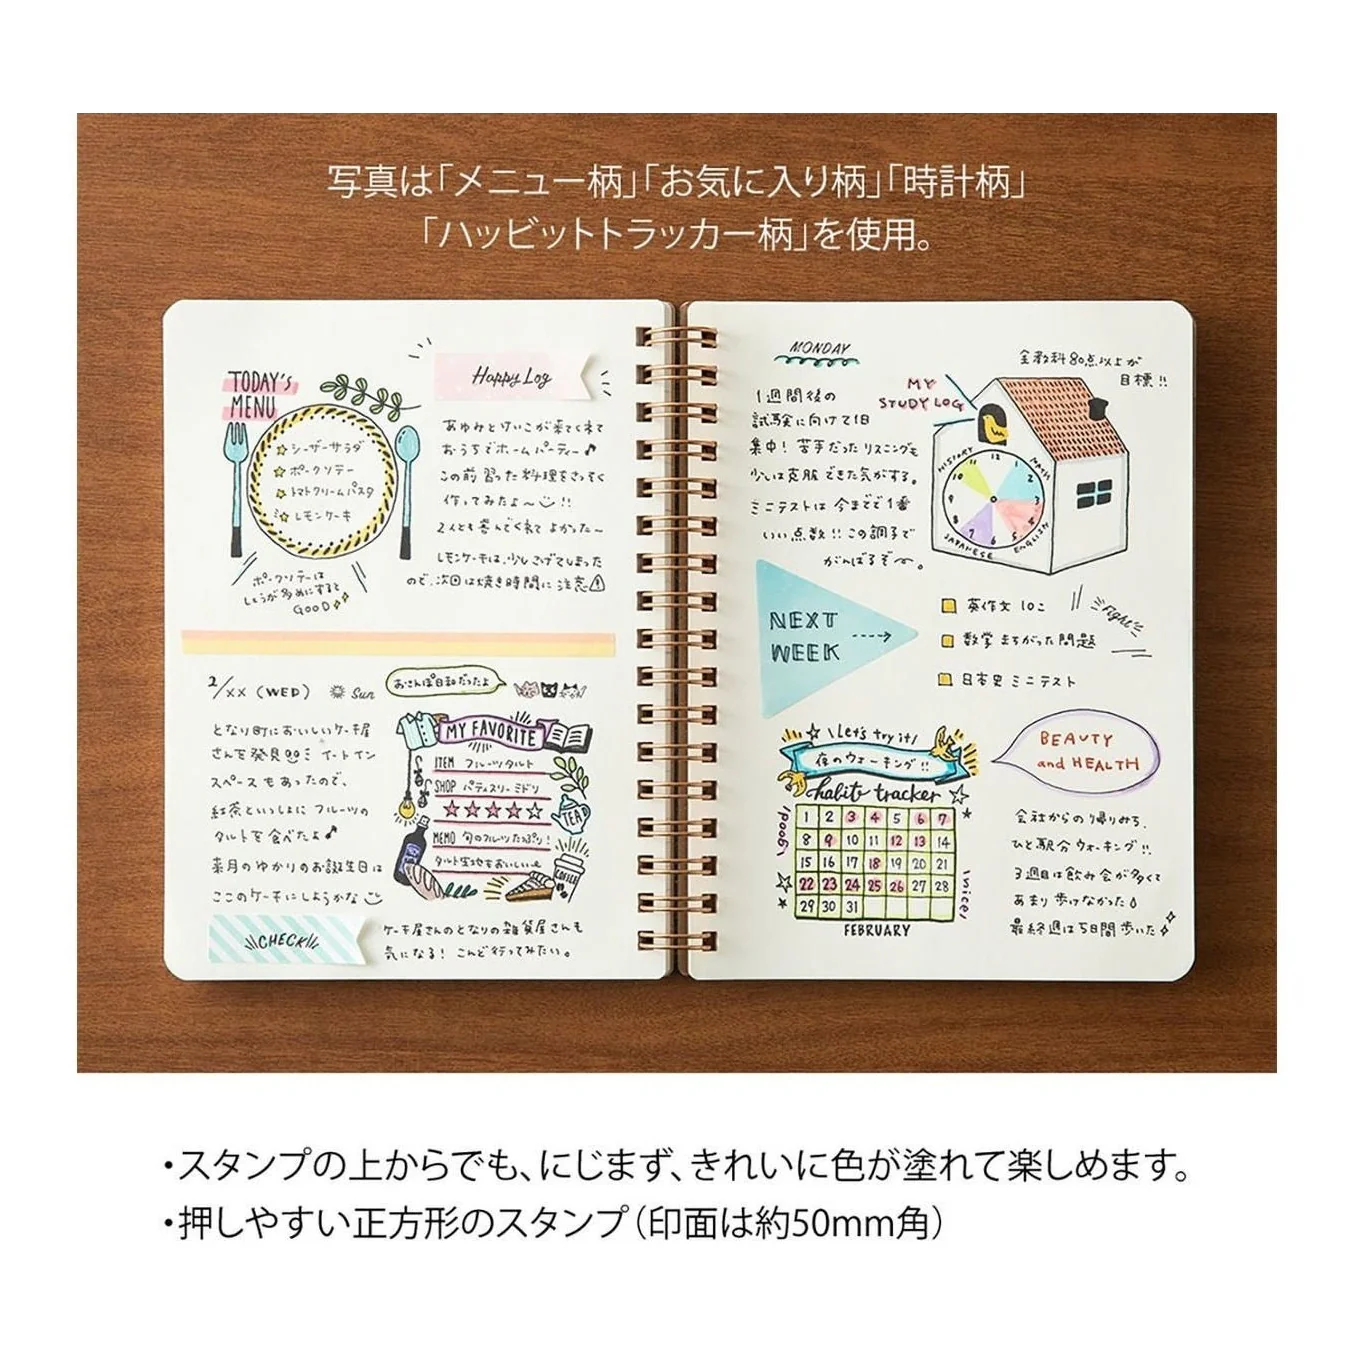 写真は「メニュー柄」「お気に入り柄」「時計柄」
「ハッビットトラッカー柄」を使用。
TODAY's
MENU
シーザーサラダ
ポークソテー
トマトクリームパスタ
レモンケーキ
ポークソテーは
しょうが多めにすると
GOOD
Happy Log
あゆみとけいこが来てくれて
おうちでホームパーティー♪
この前習った料理をさっそく
作ってみたよ〜!!
2人とも喜んでくれてよかった〜
レモンケーキは、少しこげてしまった
ので、次回は焼き時間に注意
2/××(WED)
Sun
おさんぽ日和だったよ
となり町においしいケーキ屋
さんを発見 イートイン
スペースもあったので、
紅茶といっしょにフルーツの
タルトを食べたよ♪
来月のゆかりのお誕生日は
ここのケーキにしようかな
MY FAVORITE
ITEM フルーツタルト
SHOP パティスリーミドリ
MEMO 旬のフルーツたっぷり!
タルト生地もおいしい
TEA
COFFEE
CHECK
ケーキ屋さんのとなりの雑貨屋さんも
気になる!こんど行ってみたい。
MONDAY
1週間後の
試験に向けて1日
集中!苦手だったリスニングも
少しは克服できた気がする。
ミニテストは今までで1番
いい点数!!この調子で
がんばるぞ〜。
MY
STUDY LOG
全教科80点以上が
目標!!
HISTORY
MATH
ENGLISH
JAPANESE
11 12 1 2 3 4 5 6 7 8 9 10
NEXT
WEEK
英作文10こ
数学まちがった問題
日本史ミニテスト
Fight
Let's try it!
夜のウォーキング!!
habit tracker
1 2 3 4 5 6 7
8 9 10 11 12 13 14
15 16 17 18 19 20 21
22 23 24 25 26 27 28
29 30 31
FEBRUARY
good!
nice!
BEAUTY
and HEALTH
会社からの帰りみち、
ひと駅分ウォーキング!!
3週目は飲み会が多くて
あまり歩けなかった
最終週は5日間歩いた
・スタンプの上からでも、にじまず、きれいに色が塗れて楽しめます。
・押しやすい正方形のスタンプ（印面は約50mm角）